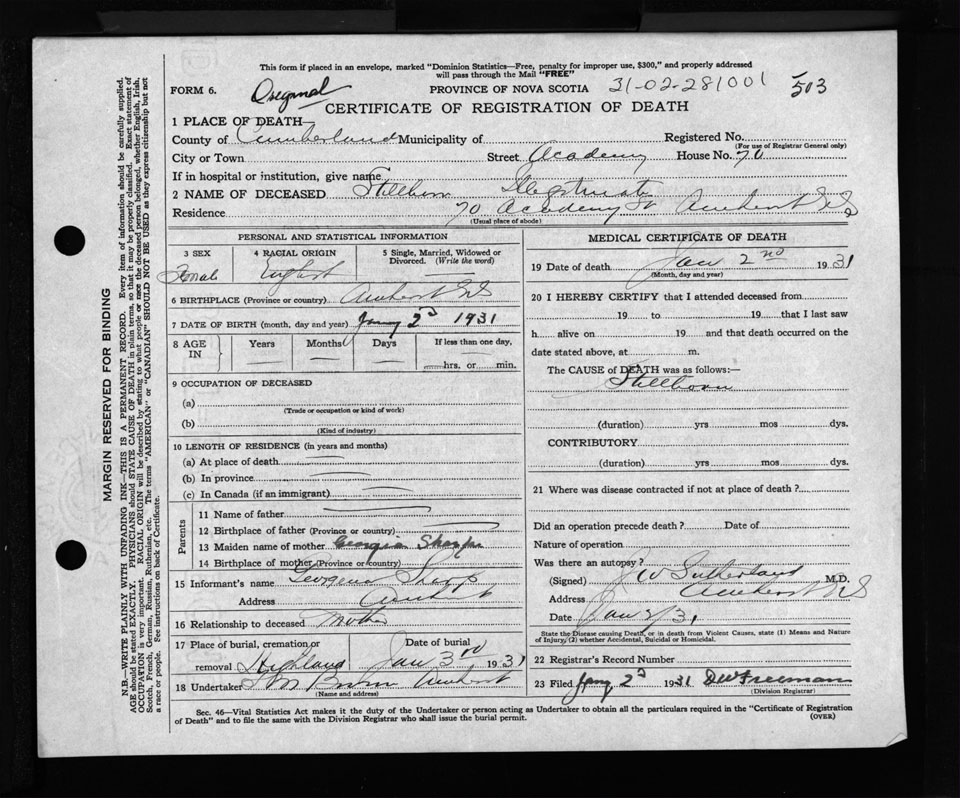 This form if placed in an envelope, marked "Dominion Statistics—Free, penalty for improper use, $300," and properly addressed
will pass through the Mail "FREE"
FORM 6. Original PROVINCE OF NOVA SCOTIA 31-02-281001 503
CERTIFICATE OF REGISTRATION OF DEATH
1 PLACE OF DEATH
County of Cumberland Municipality of Registered No.
(For use of Registrar General only)
City or Town Street Academy House No. 70
If in hospital or institution, give name
2 NAME OF DECEASED Stillborn Illegitimate
Residence 70 Academy St Amherst N.S
(Usual place of abode)
PERSONAL AND STATISTICAL INFORMATION
3 SEX 4 RACIAL ORIGIN 5 Single, Married, Widowed or
Divorced. (Write the word)
Female English
6 BIRTHPLACE (Province or country) Amherst N.S
7 DATE OF BIRTH (month, day and year) Jany 2d 1931
8 AGE IN Years Months Days If less than one day,
hrs. or min.
9 OCCUPATION OF DECEASED
(a)
(Trade or occupation or kind of work)
(b)
(Kind of industry)
10 LENGTH OF RESIDENCE (in years and months)
(a) At place of death
(b) In province
(c) In Canada (if an immigrant)
Parents
11 Name of father
12 Birthplace of father (Province or country)
13 Maiden name of mother Georgia Sharpe
14 Birthplace of mother (Province or country)
15 Informant's name Georgena Sharp
Address Amherst
16 Relationship to deceased Mother
17 Place of burial, cremation or Date of burial
removal Highland Jan 3rd 1931
18 Undertaker Brown Amherst
(Name and address)
MEDICAL CERTIFICATE OF DEATH
19 Date of death Jan 2nd 1931
(Month, day and year)
20 I HEREBY CERTIFY that I attended deceased from
19 to 19 that I last saw
h alive on 19 and that death occurred on the
date stated above, at m.
The CAUSE of DEATH was as follows:—
Stillborn
(duration) yrs mos dys.
CONTRIBUTORY
(duration) yrs mos dys.
21 Where was disease contracted if not at place of death?
Did an operation precede death? Date of
Nature of operation
Was there an autopsy?
(Signed) J W Sutherland M.D.
Address Amherst N.S
Date Jan 2/31
State the Disease causing Death, or in death from Violent Causes, state (1) Means and Nature
of Injury, (2) whether Accidental, Suicidal or Homicidal.
22 Registrar's Record Number
23 Filed Jany 2d 1931 D W Freeman
(Division Registrar)
Sec. 46—Vital Statistics Act makes it the duty of the Undertaker or person acting as Undertaker to obtain all the particulars required in the "Certificate of Registration
of Death" and to file the same with the Division Registrar who shall issue the burial permit.
(OVER)
MARGIN RESERVED FOR BINDING
N.B.—WRITE PLAINLY WITH UNFADING INK—THIS IS A PERMANENT RECORD. Every item of information should be carefully supplied.
AGE should be stated EXACTLY. PHYSICIANS should STATE CAUSE OF DEATH in plain terms, so that it may be properly classified. Exact statement of
OCCUPATION is very important. RACIAL ORIGIN will be described by stating to what people or race the deceased person belonged, whether English, Irish,
Scotch, French, German, Russian, Ruthenian, etc. The terms "AMERICAN" or "CANADIAN" SHOULD NOT BE USED as they express citizenship but not
a race or people. See instructions on back of Certificate.